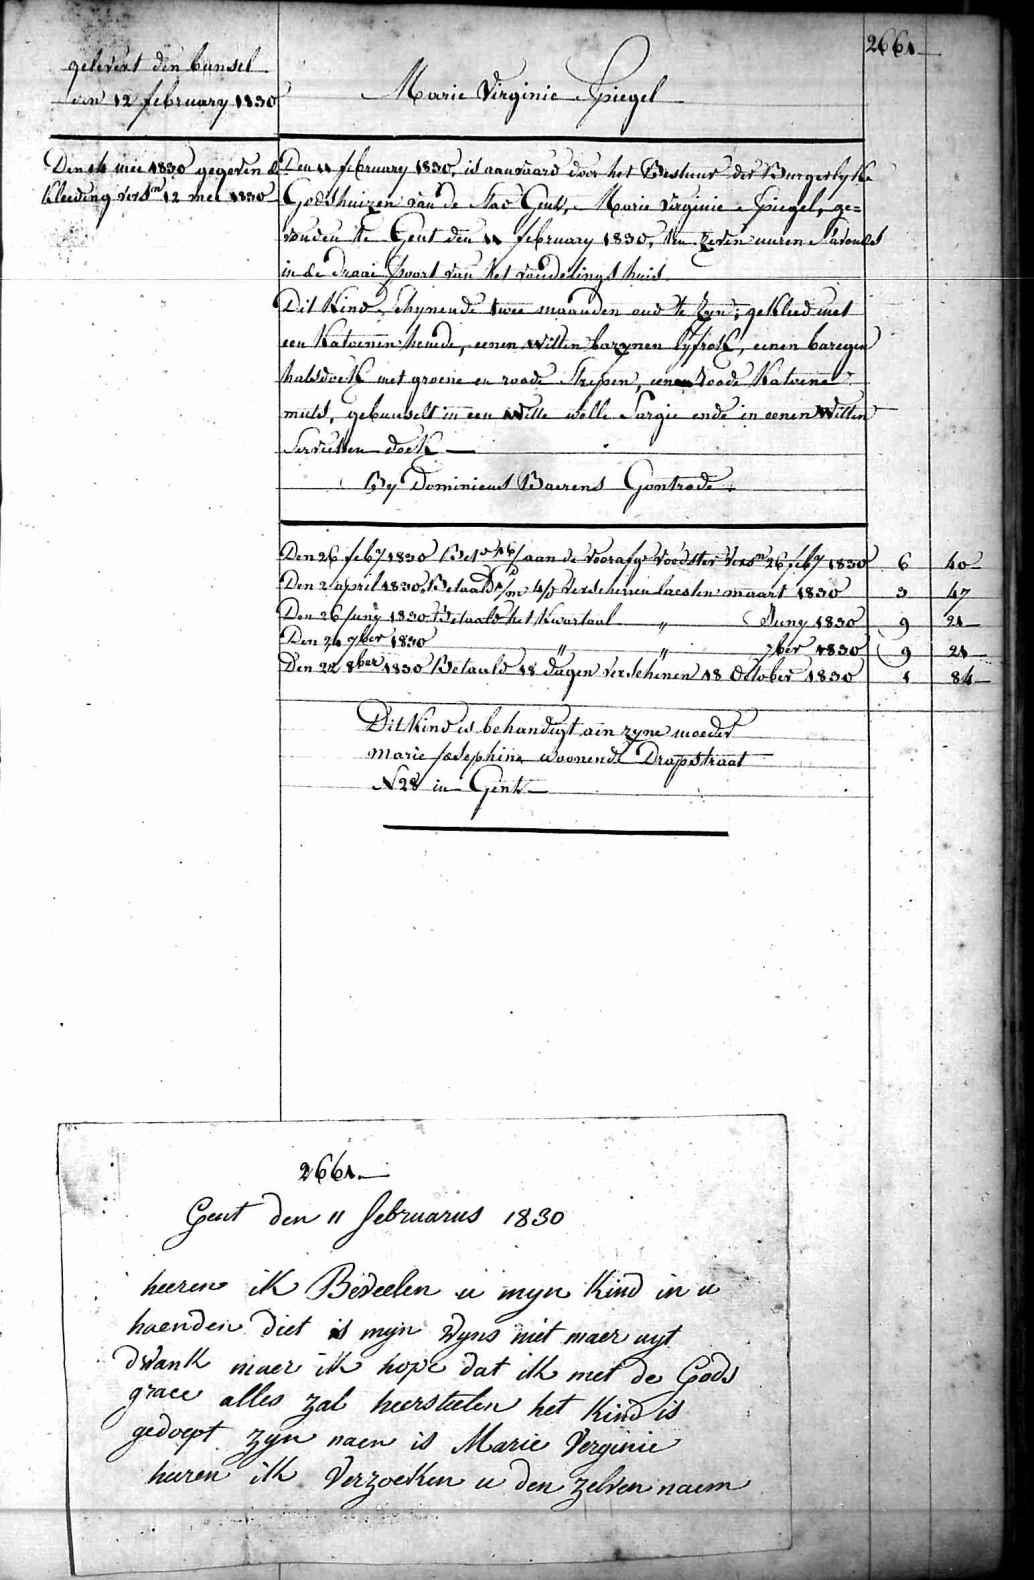 2661
gelevert den bunsel
den 12 february 1830
Marie Virginie Spiegel
Den 14 mei 1830 gegeven de
kleeding versn 12 mei 1830
Den 11 february 1830, is aanvaard door het Bestuur der Burgerlyke
Godshuizen van de Stad Gent, Marie Virginie Spiegel, ge=
vonden te Gent den 11 february 1830, ten zeven uuren s'avonds
in de draai poort van het vondelings huis.
Dit Kind, schynende twee maanden oud te zyn; gekleed met
een Katoenen hemde, eenen witten bazynen lyfrok, eenen baregen
halsdoek met groene en roode strepen, eenen roode Katoene
muts, gebunselt in een witte wolle Sargie ende in eenen witten
Servietten doek
By Dominicus Baerens Gontrode.
Den 26 feby 1830 aan de voedster versn 26 feby 1830 6 40
Den 2 april 1830 Betaald verschenen laesten maart 1830 3 47
Den 26 Juny 1830 Betaald het Kwartaal " Juny 1830 9 21
Den 24 7ber 1830 " " 7ber 1830 9 21
Den 22 8ber 1830 Betaald 18 dagen verschenen 18 October 1830 1 84
Dit Kind is behandigt aan zyne moeder
Marie Josephine woonende Drapstraat
N 28 in Gent
2661.
Gent den 11 februarus 1830
heeren ik Beveelen u myn Kind in u
haenden diet is myn wyns niet maer uyt
dwank maer ik hope dat ik met de Gods
grace alles zal heerstelen het Kind is
gedoept zyn naen is Marie Verginie
heeren ik Verzoeken u den zelven naem